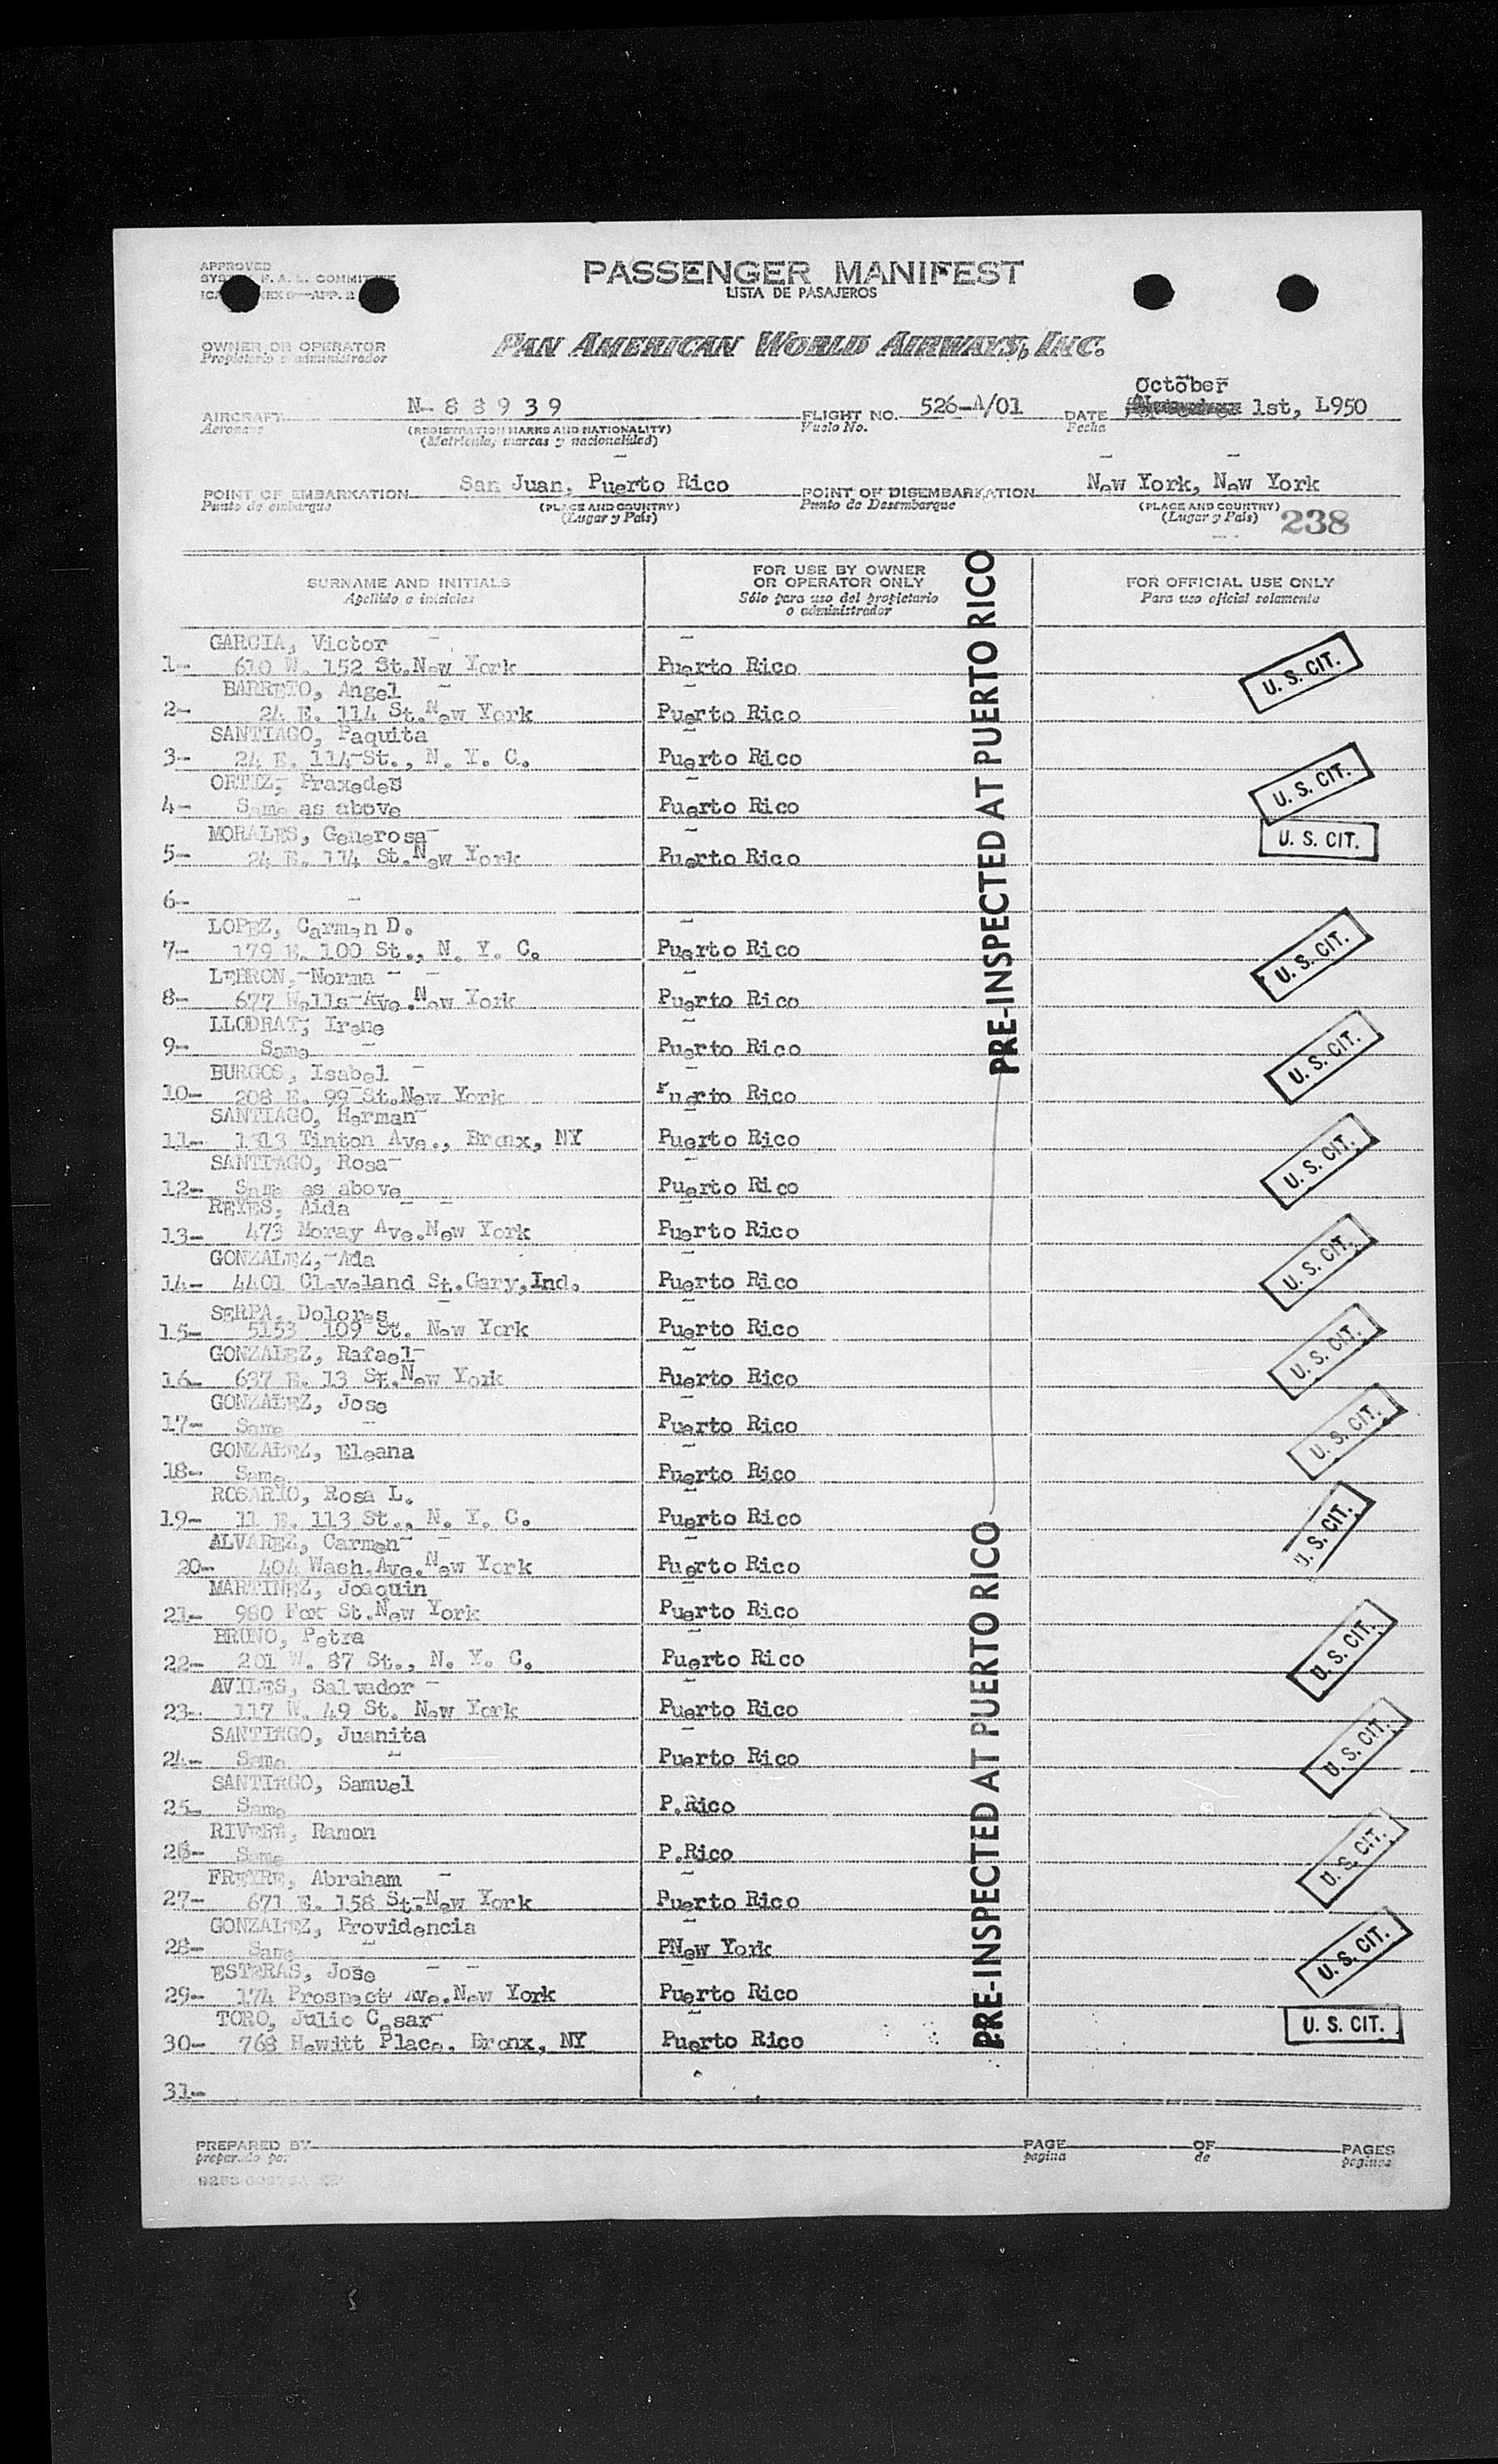 APPROVED
PASSENGER MANIFEST
F. A. L. COMMITTEE
LISTA DE PASAJEROS
APP. 2
OWNER OR OPERATOR
Propietario o administrador
PAN AMERICAN WORLD AIRWAYS, INC.
October
AIRCRAFT N-88939 FLIGHT NO. 526-A/01 DATE 1st, L950
Aeronave (REGISTRATION MARKS AND NATIONALITY) Vuelo No. Fecha
(Matricula, marcas y nacionalidad)
POINT OF EMBARKATION San Juan, Puerto Rico POINT OF DISEMBARKATION New York, New York
Punto de embarque (PLACE AND COUNTRY) Punto de Desembarque (PLACE AND COUNTRY)
(Lugar y Pais) (Lugar y Pais) 238
SURNAME AND INITIALS FOR USE BY OWNER OR OPERATOR ONLY FOR OFFICIAL USE ONLY
Apellido e iniciales Sólo para uso del propietario o administrador Para uso oficial solamente
GARCIA, Victor
1- 610 W. 152 St.New York Puerto Rico U. S. CIT.
BARRETO, Angel
2- 24 E. 114 St.New York Puerto Rico
SANTIAGO, Paquita
3- 24 E. 114 St., N. Y. C. Puerto Rico
ORTIZ, Praxedes
4- Same as above Puerto Rico U. S. CIT.
MORALES, Generosa
5- 24 E. 114 St.New York Puerto Rico U. S. CIT.
6-
LOPEZ, Carmen D.
7- 179 E. 100 St., N. Y. C. Puerto Rico U. S. CIT.
LEBRON, Norma
8- 677 Wells Ave.New York Puerto Rico
LLODRAT, Irene
9- Same Puerto Rico U. S. CIT.
BURGOS, Isabel
10- 208 E. 99 St.New York Puerto Rico
SANTIAGO, Herman
11- 1313 Tinton Ave., Bronx, NY Puerto Rico
SANTIAGO, Rosa
12- Same as above Puerto Rico U. S. CIT.
REYES, Aida
13- 473 Moray Ave.New York Puerto Rico
GONZALEZ, Ada
14- 4401 Cleveland St.Gary,Ind. Puerto Rico U. S. CIT.
SERPA, Dolores
15- 5153 109 St. New York Puerto Rico
GONZALEZ, Rafael
16- 637 E. 13 St.New York Puerto Rico U. S. CIT.
GONZALEZ, Jose
17- Same Puerto Rico U. S. CIT.
GONZALEZ, Eleana
18- Same Puerto Rico
ROSARIO, Rosa L.
19- 11 E. 113 St., N. Y. C. Puerto Rico U. S. CIT.
ALVAREZ, Carmen
20- 404 Wash.Ave.New York Puerto Rico
MARTINEZ, Joaquin
21- 980 Fox St.New York Puerto Rico
BRUNO, Petra
22- 201 W. 87 St., N. Y. C. Puerto Rico U. S. CIT.
AVILES, Salvador
23- 117 W. 49 St. New York Puerto Rico
SANTIAGO, Juanita
24- Same Puerto Rico U. S. CIT.
SANTIAGO, Samuel
25- Same P.Rico
RIVERA, Ramon
26- Same P.Rico U. S. CIT.
FREYRE, Abraham
27- 671 E. 158 St.New York Puerto Rico
GONZALEZ, Providencia
28- Same PNew York U. S. CIT.
ESTERAS, Jose
29- 174 Prospect Ave.New York Puerto Rico
TORO, Julio Cesar
30- 768 Hewitt Place, Bronx, NY Puerto Rico U. S. CIT.
31-
PRE-INSPECTED AT PUERTO RICO
PRE-INSPECTED AT PUERTO RICO
PREPARED BY PAGE OF PAGES
preparado por pagina de paginas